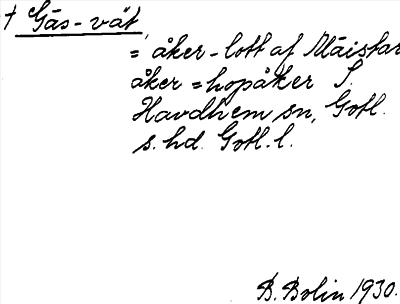 † Gås-vät,
= åker-lott af Mäistar
åker = hopåker S.
Havdhem sn, Gotl.
s. hd. Gotl. l.
B. Bolin 1930.